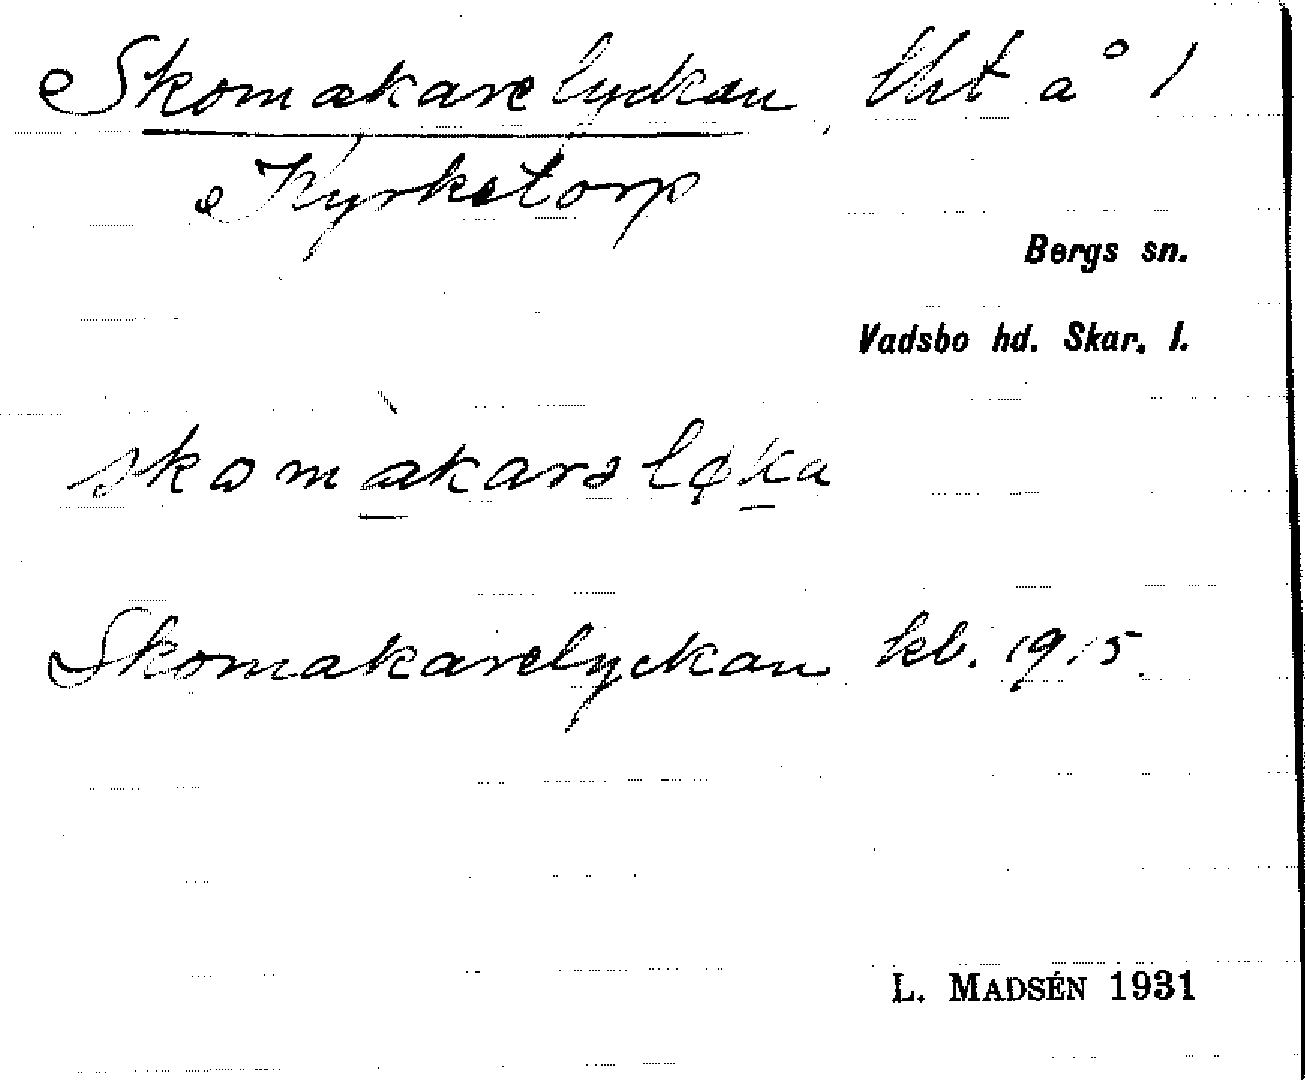 Skomakarelyckan, lht å 1
Kyrketorp
Bergs sn.
Vadsbo hd. Skar. l.
skomakarə lǫka
Skomakarelyckan kb. 1915.
L. MADSÉN 1931